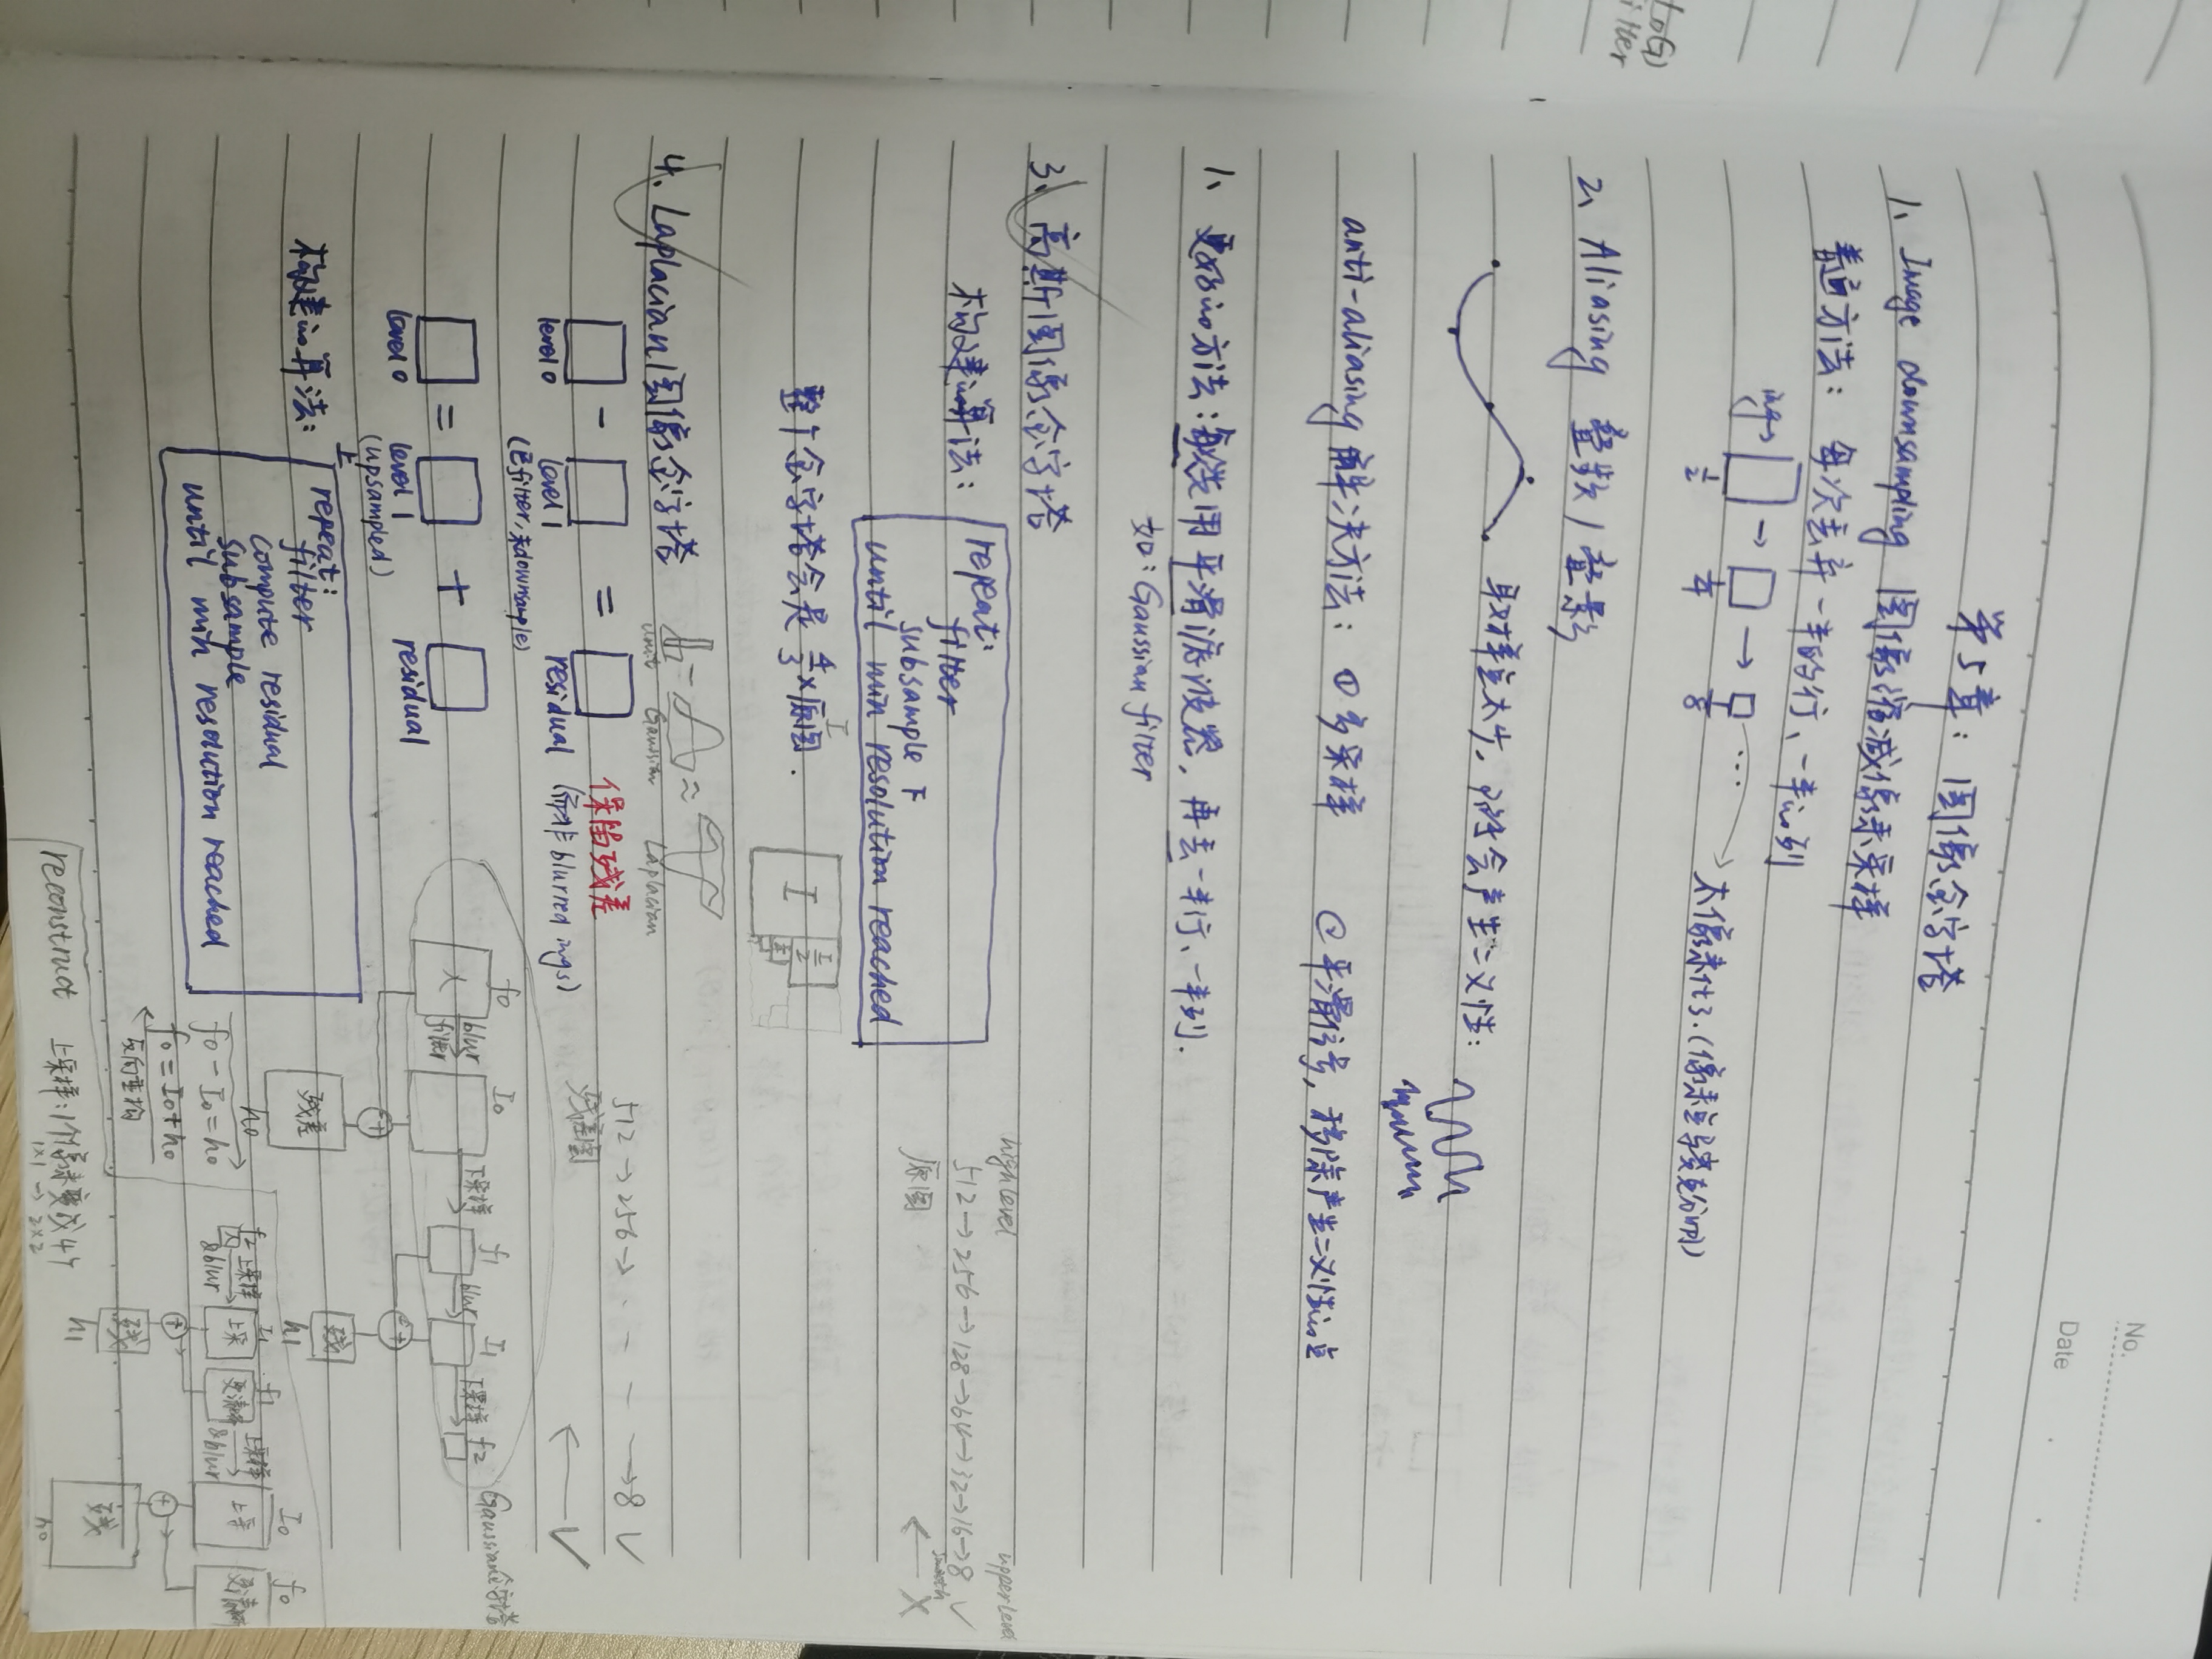 No.
Date
第5章：图像金字塔
1、Image downsampling 图像缩减像素采样
普通方法：每次丢弃一半的行、一半的列
img→ → → ···
1/2 1/4 1/8
太像素化了.(像素点马赛克分明)
toG)
ilter
2、Aliasing 叠频/叠影
取样点太少，会产生二义性：
anti-aliasing 解决方法：①多采样 ②平滑信号，移除产生二义性的点
1、更好的方法：每次先用平滑滤波器，再丢一半行、一半列.
如：Gaussian filter
3、高斯图像金字塔
构建的算法：
repeat:
filter
subsample 下
until min resolution reached
high level upper level
512→256→128→64→32→16→8 ✓
原图 smooth
← ×
整个金字塔会是 4/3×原图.
I
I I/2
4、Laplacian图像金字塔
unit − Gaussian ≈ Laplacian
level 0 − level 1 = residual
(已filter,未downsample)
保留残差
(而非 blurred imgs)
512→256→· - - →8 ✓
残差图
← ✓
level 0 = level 1 + residual
(upsampled)
上
f0 I0 f1 I1 f2 Gaussian金字塔
blur filter 下采样 blur 下采样
- + - +
残差 残
h0 h1
构建的算法：
repeat:
filter
compute residual
subsample
until min resolution reached
f0 − I0 = h0
f0 = I0 + h0
反向重构
f2 上采样&blur I1 上采 f1 变清晰 上采样&blur I0 上采 f0 变清晰
+ +
残 残
h1 h0
reconstruct 上采样：1个像素变成4个
1×1 → 2×2